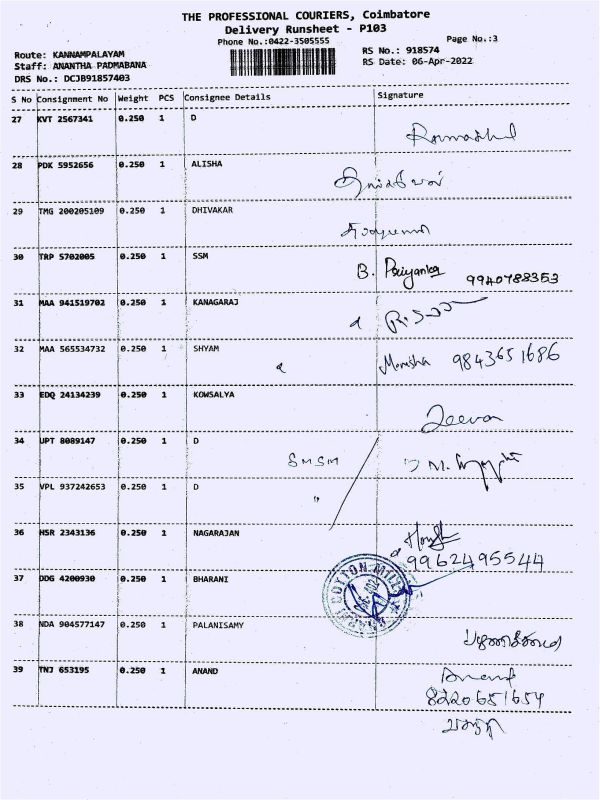 THE PROFESSIONAL COURIERS, Coimbatore
Delivery Runsheet - P103
Phone No.:0422-3505555
Page No.:3
Route: KANNAMPALAYAM
RS No.: 918574
Staff: ANANTHA PADMABANA
RS Date: 06-Apr-2022
DRS No.: DCJB91857403
S No Consignment No Weight PCS Consignee Details Signature
27 KVT 2567341 0.250 1 D
28 PDK 5952656 0.250 1 ALISHA
29 TMG 200205109 0.250 1 DHIVAKAR
30 TRP 5702005 0.250 1 SSM B. Priyanka 9940788353
31 MAA 941519702 0.250 1 KANAGARAJ
32 MAA 565534732 0.250 1 SHYAM Monisha 9843651686
33 EDQ 24134239 0.250 1 KOWSALYA Jeeva
34 UPT 8089147 0.250 1 D SMSM
35 VPL 937242653 0.250 1 D "
36 HSR 2343136 0.250 1 NAGARAJAN
9962495544
37 DDG 4200930 0.250 1 BHARANI
COTTON MILLS
38 NDA 904577147 0.250 1 PALANISAMY
39 TNJ 653195 0.250 1 ANAND Anand
8220651654